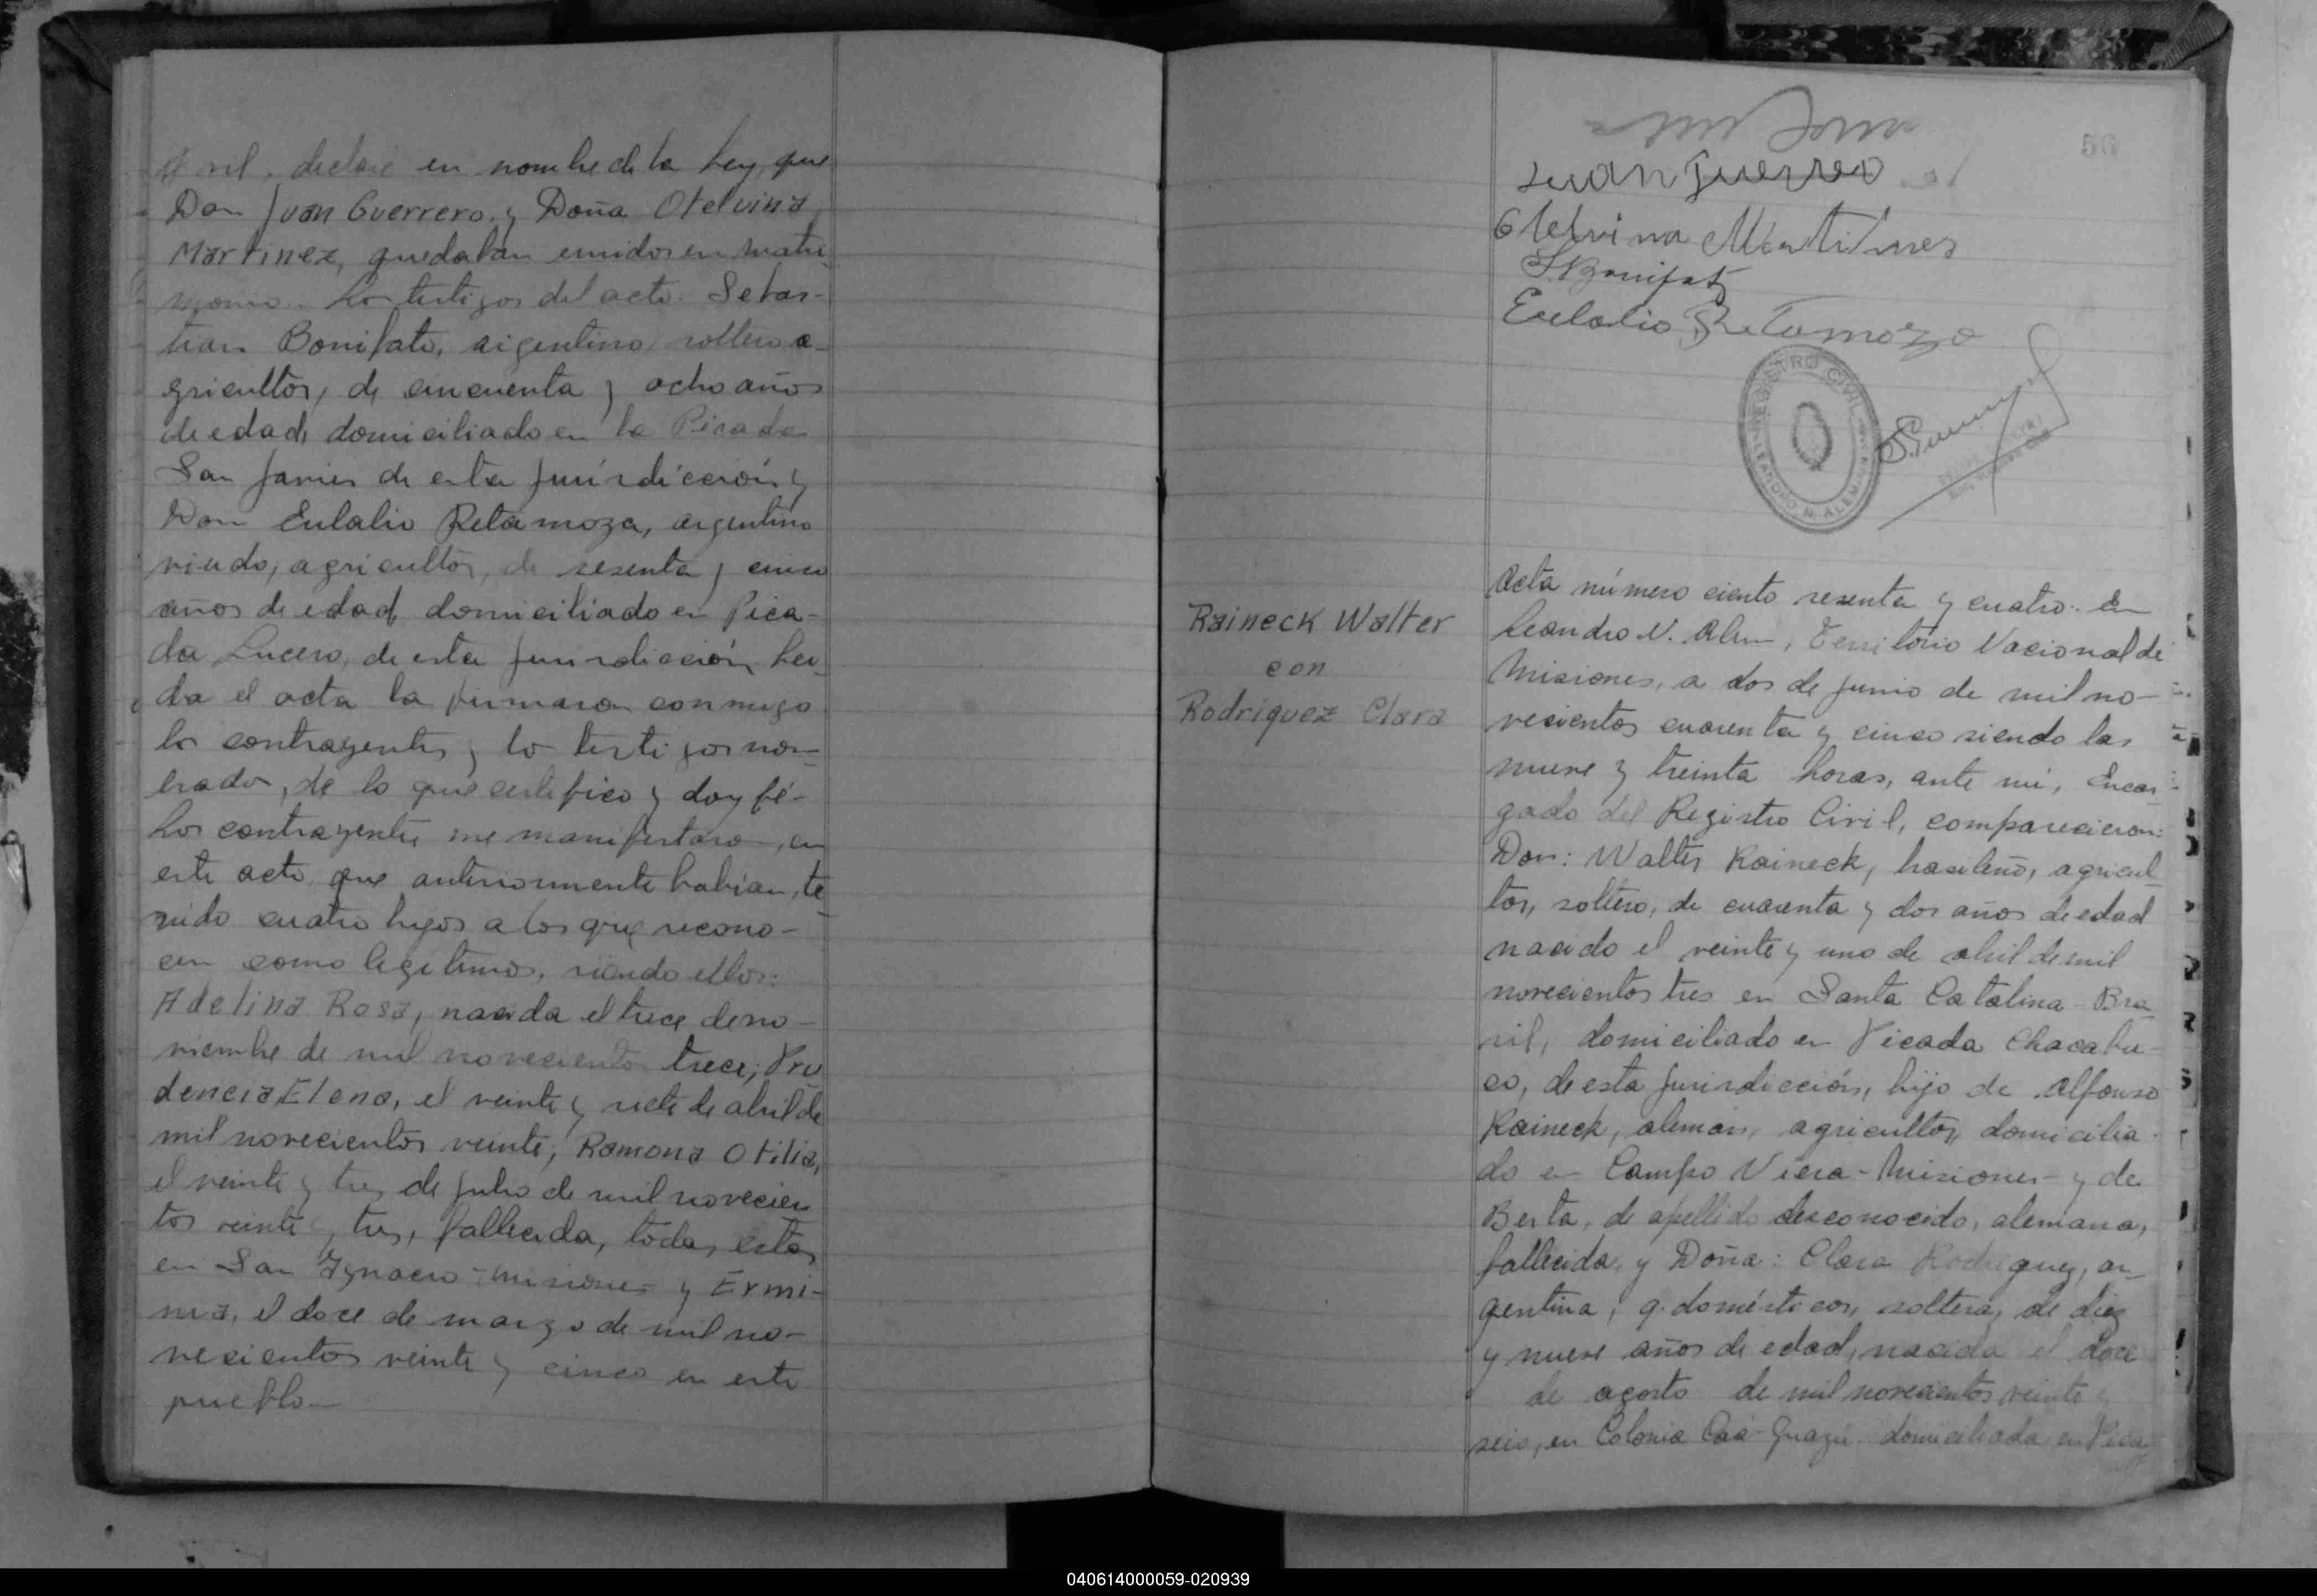 declaré en nombre de la Ley, que
Don Juan Guerrero y Doña Otelvina
Martinez, quedaban unidos en matri-
monio. Los testigos del acto: Sebas-
tian Bonifato, argentino soltero a-
gricultor, de cincuenta y ocho años
de edad, domiciliado en la Picada
San Javier de esta jurisdicción y
Don Eulalio Retamoza, argentino
viudo, agricultor, de sesenta y cinco
años de edad, domiciliado en Pica-
da Lucero, de esta jurisdicción, leí-
da el acta la firmaron conmigo
los contrayentes y lo testigos nom-
brados, de lo que certifico y doy fé-
Los contrayentes me manifestaron, en
este acto que anteriormente habian, te
nido cuatro hijos a los que recono-
cen como legitimos, siendo ellos:
Adelina Rosa, nacida el trece de no-
viembre de mil novecientos trece; Pru
dencia Elena, el veinte y siete de abril de
mil novecientos veinte; Ramona Otilia,
el veinte y tres de julio de mil novecien
tos veinte y tres, fallecida, todas estas
en San Ygnacio - Misiones y Ermi-
nia, el doce de marzo de mil no-
vecientos veinte y cinco en este
pueblo-
56
Juan Guerrero
Otelvina Martines
S. Bonifato
Eulalio Retamozo
REGISTRO CIVIL
LEANDRO N. ALEM
Raineck Walter
con
Rodriguez Clara
Acta número ciento sesenta y cuatro. En
Leandro N. Alem, Territorio Nacional de
Misiones, a dos de junio de mil no-
vecientos cuarenta y cinco siendo las
nueve y treinta horas, ante mí, Encar-
gado del Registro Civil, comparecieron:
Don: Walter Raineck, brasileño, agricul
tor, soltero, de cuarenta y dos años de edad
nacido el veinte y uno de abril de mil
novecientos tres en Santa Catalina - Bra
sil, domiciliado en Picada Chacabu-
co, de esta jurisdicción, hijo de Alfonso
Raineck, alemán, agricultor, domicilia-
do en Campo Viera - Misiones - y de
Berta, de apellido desconocido, alemana,
fallecida, y Doña: Clara Rodriguez, ar-
gentina, q. domésticos, soltera, de diez
y nueve años de edad, nacida el doce
de agosto de mil novecientos veinte y
seis, en Colonia Caá-Guazú domiciliada en Pica
040614000059-020939